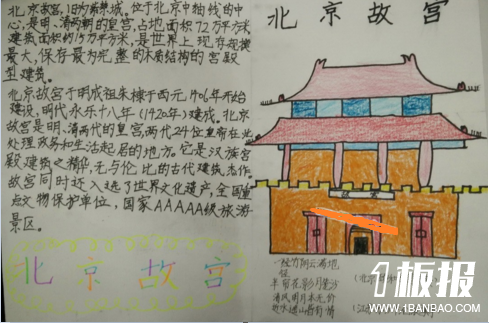 北京故宫,旧为紫禁城,位于北京中轴线的中
心,是明、清两朝的皇宫,占地面积72万平方米
建筑面积约15万平方米,是世界上现存规模
最大,保存最为完整的木质结构的宫殿
型建筑。
北京故宫于明成祖朱棣于西元1406年开始
建设,明代永乐十八年(1420年)建成。北京
故宫是明、清两代的皇宫,两代24位皇帝在此
处理政务和生活起居的地方。它是汉族宫
殿建筑之精华,无与伦比的古代建筑杰作。
故宫同时还入选了世界文化遗产,全国重
点文物保护单位,国家AAAAA级旅游
景区。
北京故宫
北京故宫
清风明月本无价
板报
WWW.1BANBAO.COM